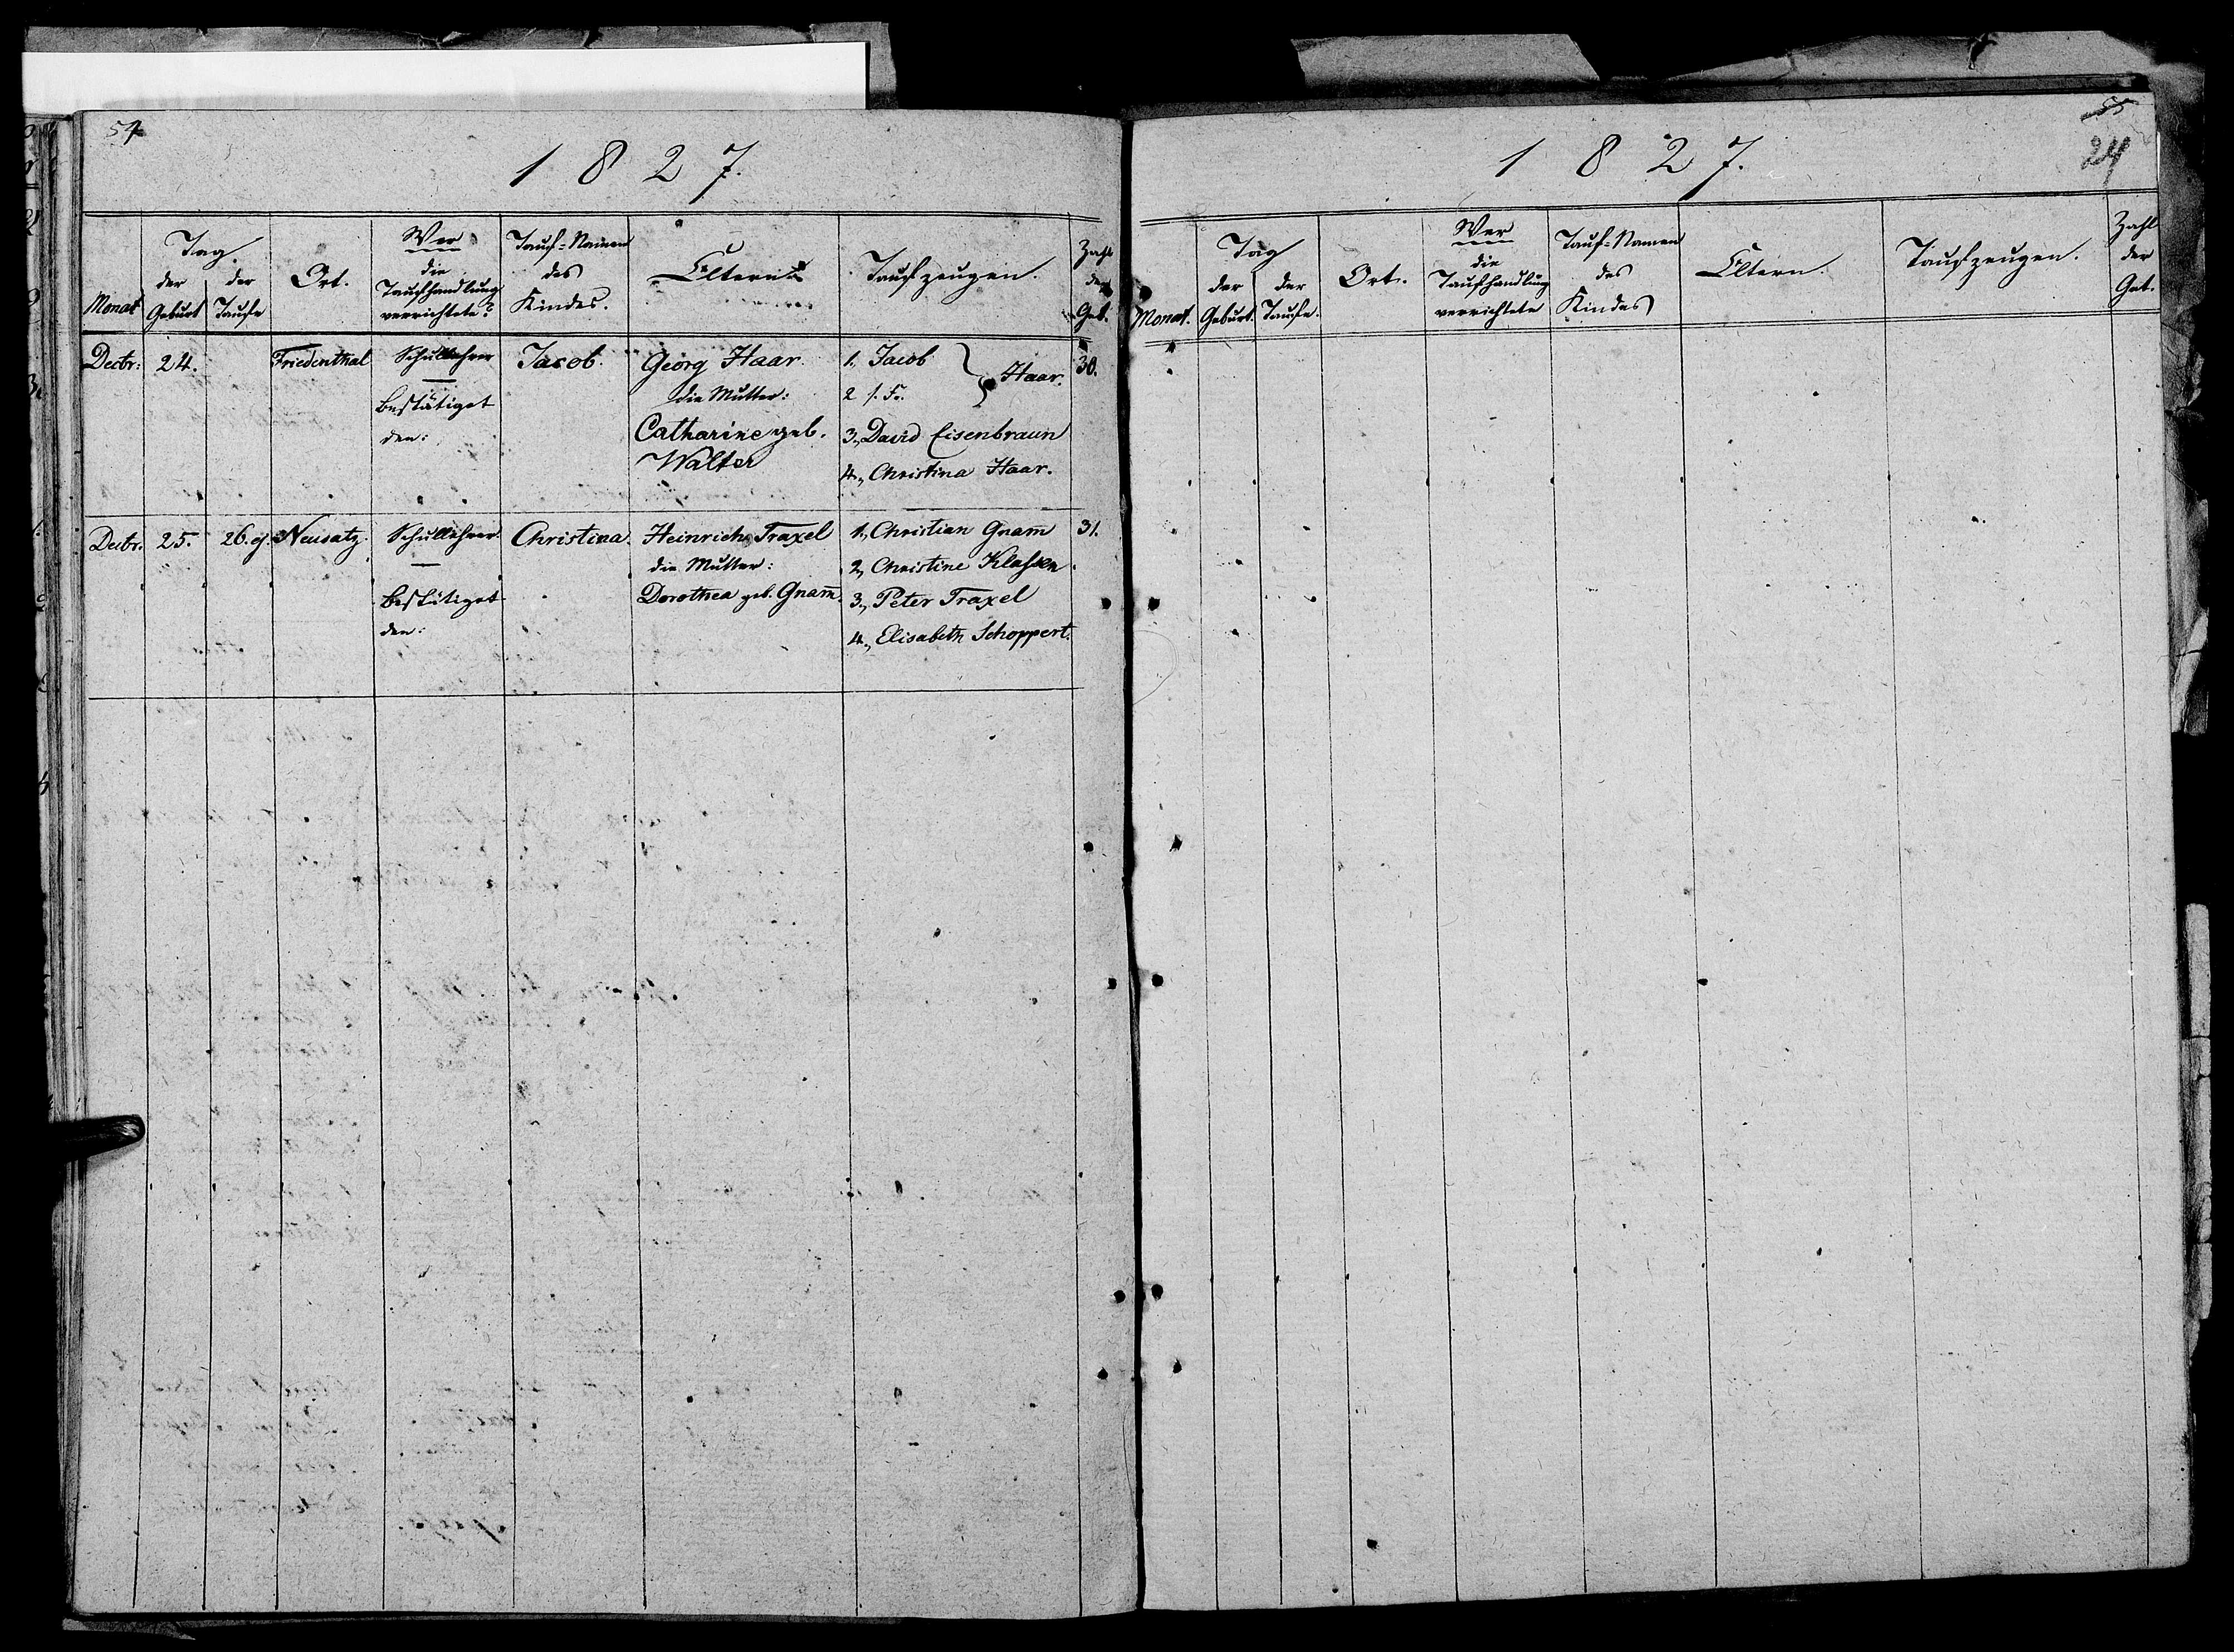 54
1827.
Monat
Tag
der Geburt
der Taufe
Ort.
Wer
die
Taufhandlung
verrichtete?
Tauf-Namen
des
Kindes.
Eltern
Taufzeugen.
Zahl
der
Geb.
Decbr: 24.
Friedenthal
Schullehrer
—
bestätiget
den:
Jacob.
Georg Haar.
die Mutter:
Catharine geb.
Walter
1., Jacob } Haar.
2 s. Fr.
3., David Eisenbraun
4., Christina Haar.
30.
Decbr. 25. 26. ej. Neusatz.
Schullehrer.
—
Bestätiget
den:
Christina.
Heinrich Traxel
die Mutter:
Dorothea geb. Gnam̅.
1., Christian Gnam̅
2., Christine
3., Peter Traxel
4., Elisabeth Schoppert.
31.
55
24
1827.
Monat.
Tag
der Geburt.
der Taufe.
Ort.
Wer
die
Taufhandlung
verrichtete
Tauf-Namen
des
Kindes
Eltern.
Taufzeugen.
Zahl
der
Geb.